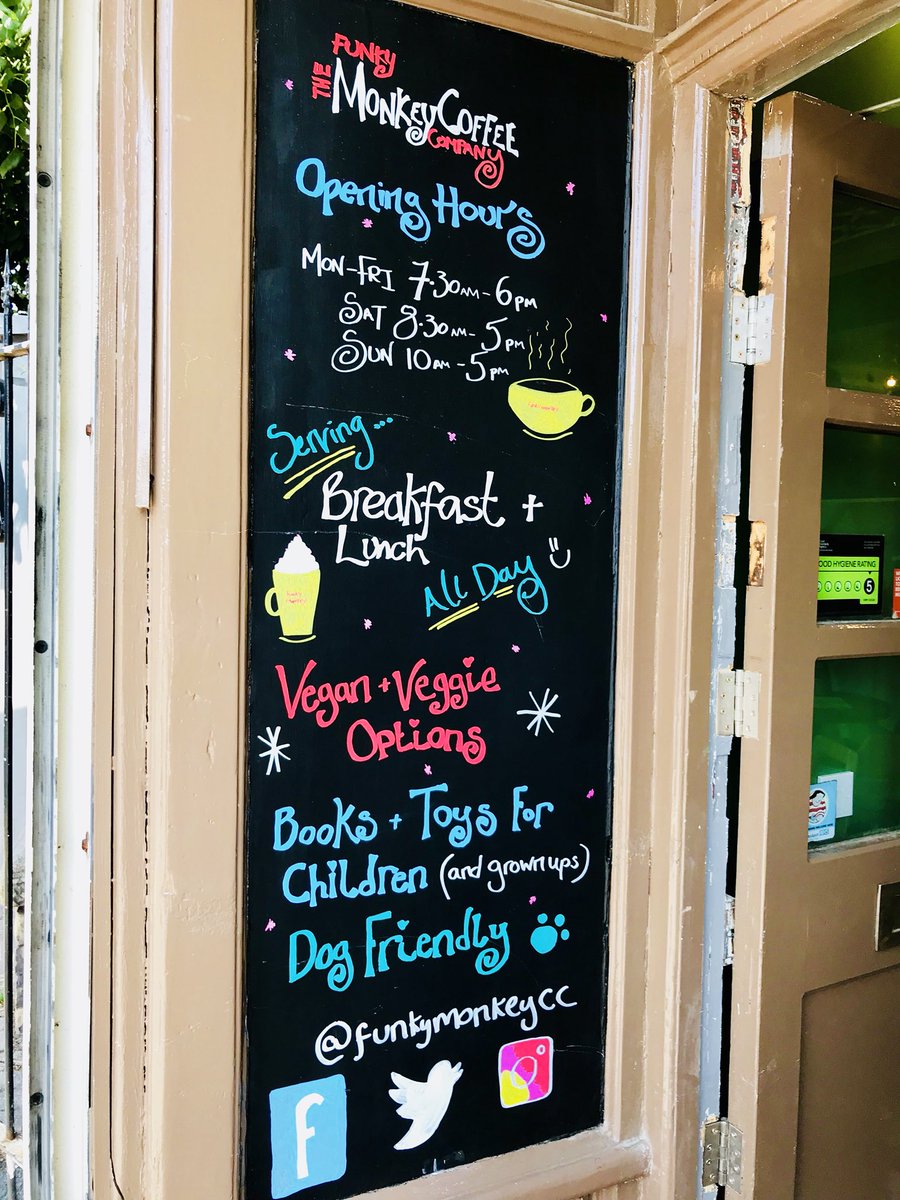 THE FUNKY
MONKEY COFFEE
COMPANY
Opening Hours
MON-FRI 7.30AM-6PM
SAT 8.30AM-5PM
SUN 10AM-5PM
Serving...
Breakfast +
Lunch
All Day
Vegan + Veggie
Options
Books + Toys For
Children (and grownups)
Dog Friendly
@funkymonkeycc
f
OOD HYGIENE RATING
5